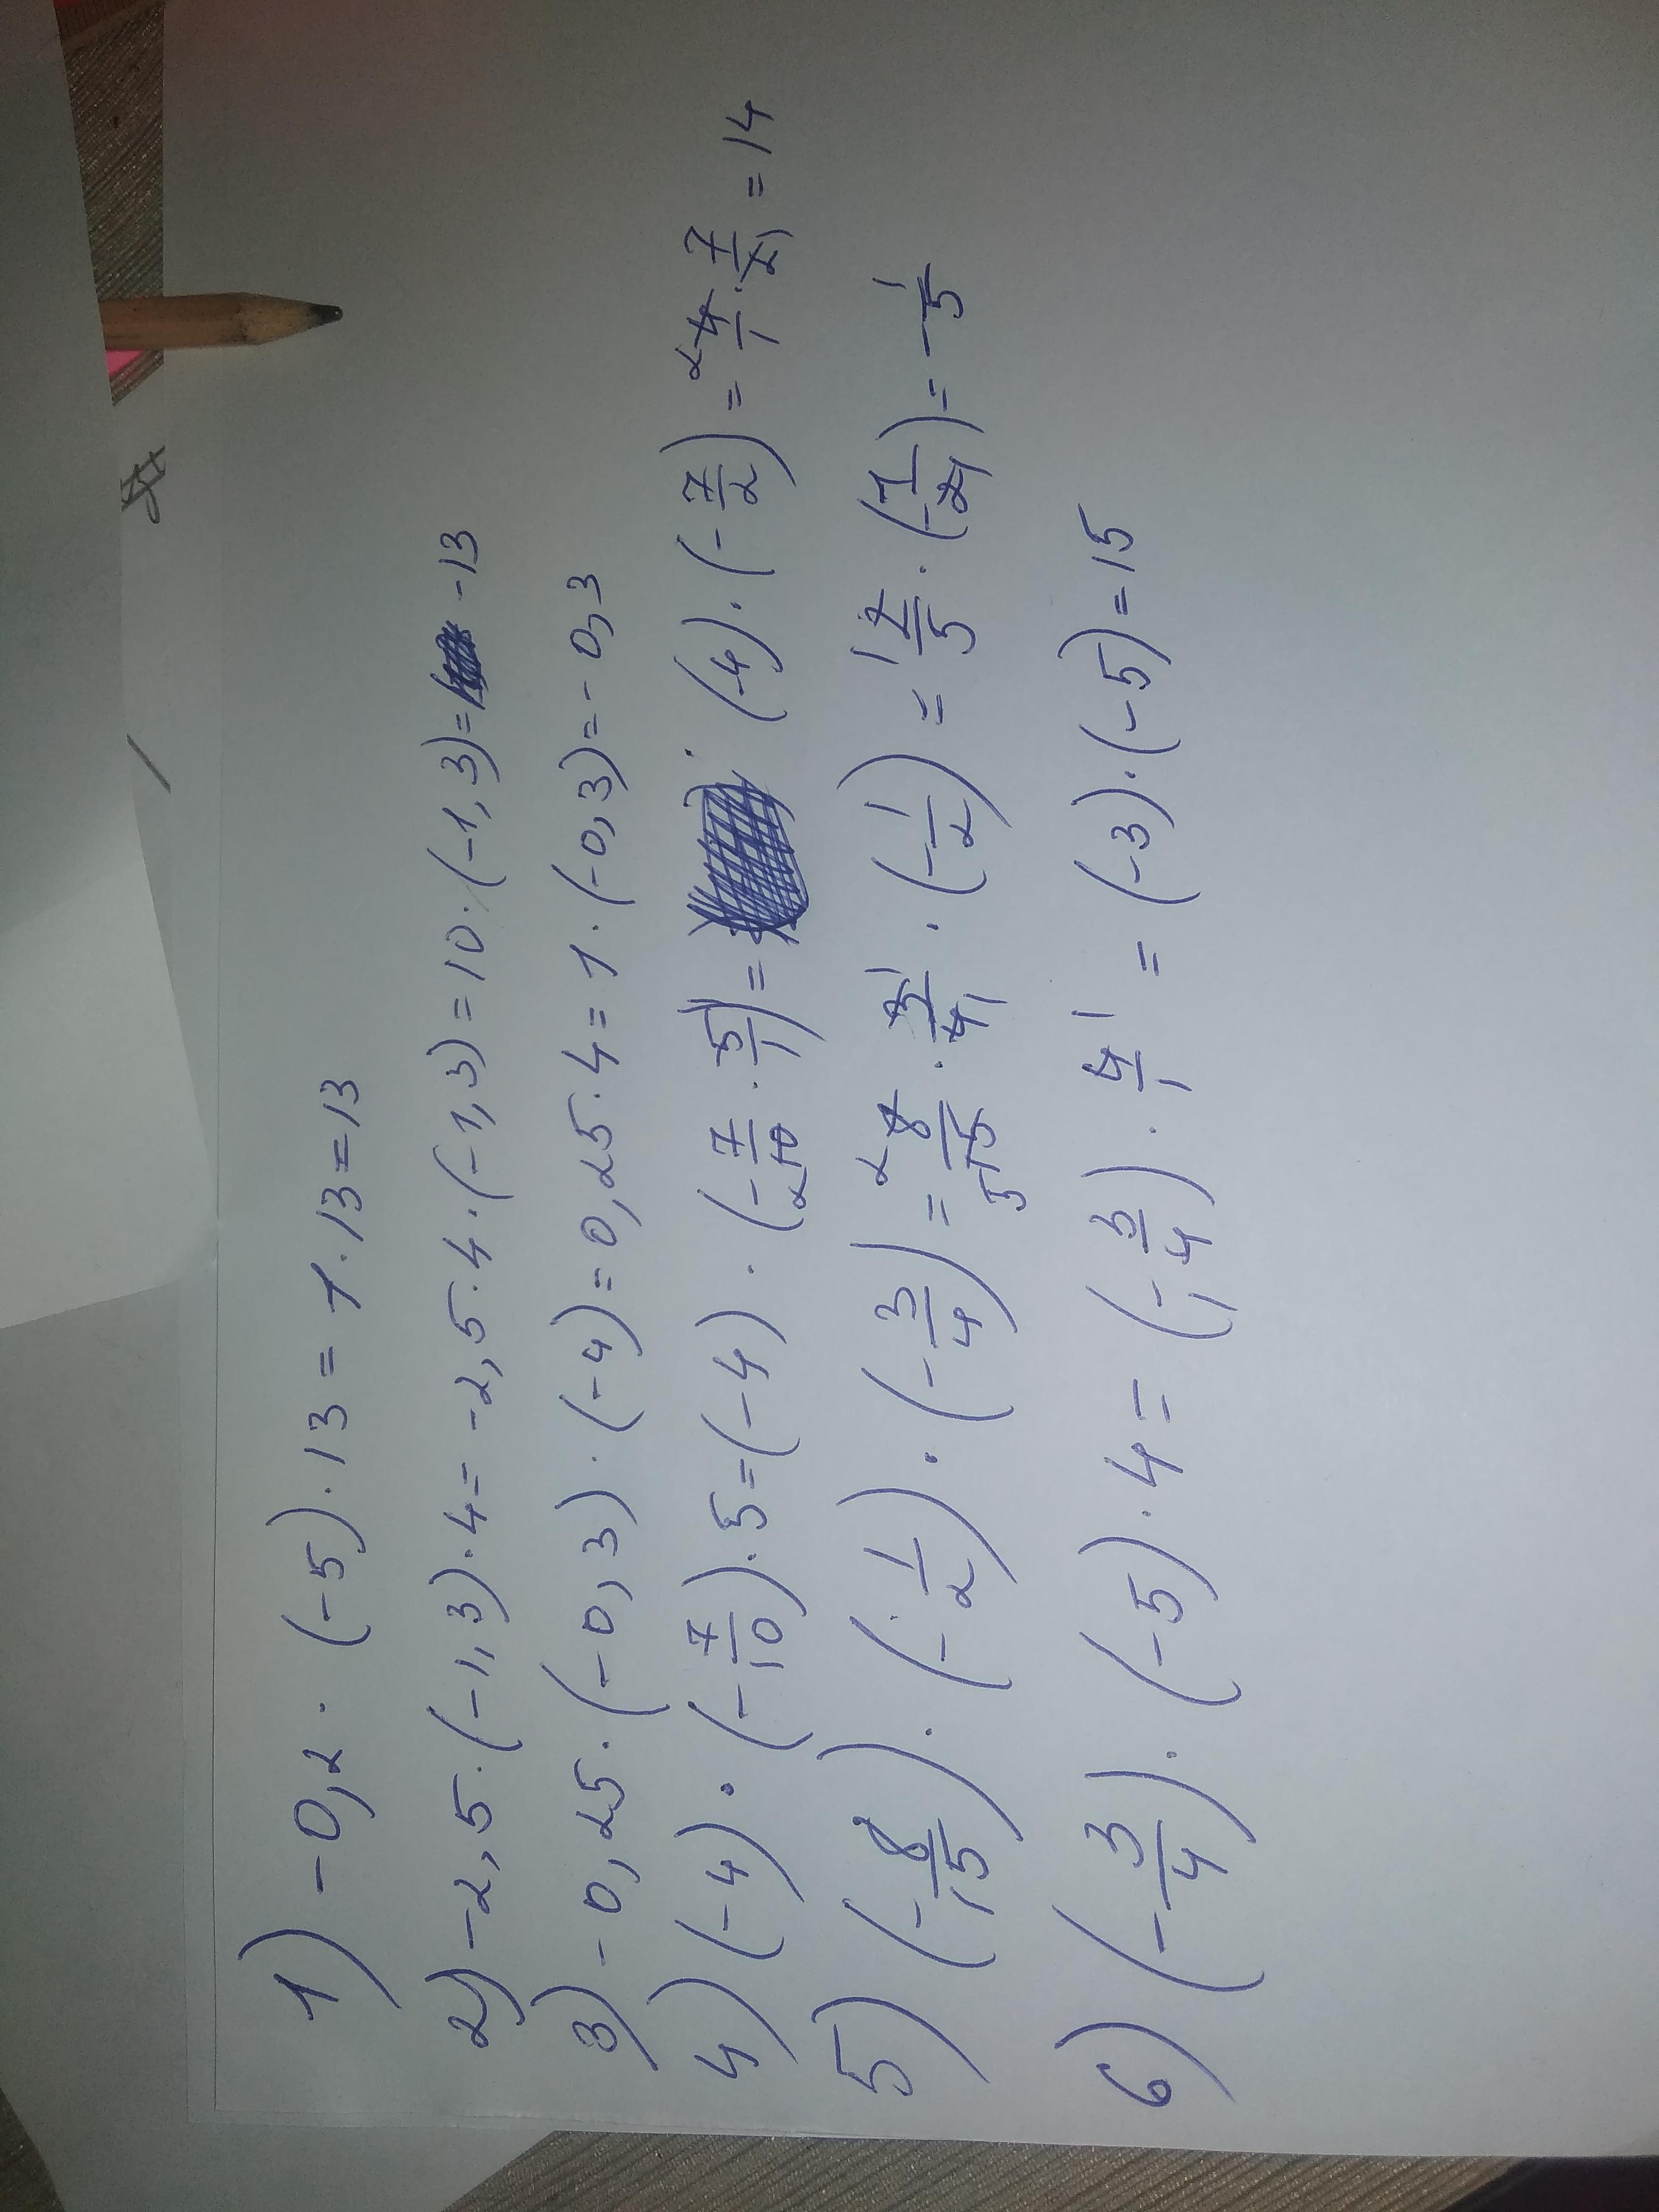 1) -0,2 · (-5) · 13 = 1 · 13 = 13
2) -2,5 · (-1,3) · 4 = -2,5 · 4 · (-1,3) = 10 · (-1,3) = -13
3) -0,25 · (-0,3) · (-4) = 0,25 · 4 = 1 · (-0,3) = -0,3
4) (-4) · (-7/10) · 5 = (-4) · (-7/10 2 · 5/1) = · (-4) · (-7/2) = 2 4/1 · 7/2 1 = 14
5) (-8/15) · (-1/2) · (-3/4) = 2 8/15 5 · 3 1/4 1 · (-1/2) = 1 2/5 · (-1/2 1) = -1/5
6) (-3/4) · (-5) · 4 = (-3/4 1) · 4/1 1 = (-3) · (-5) = 15